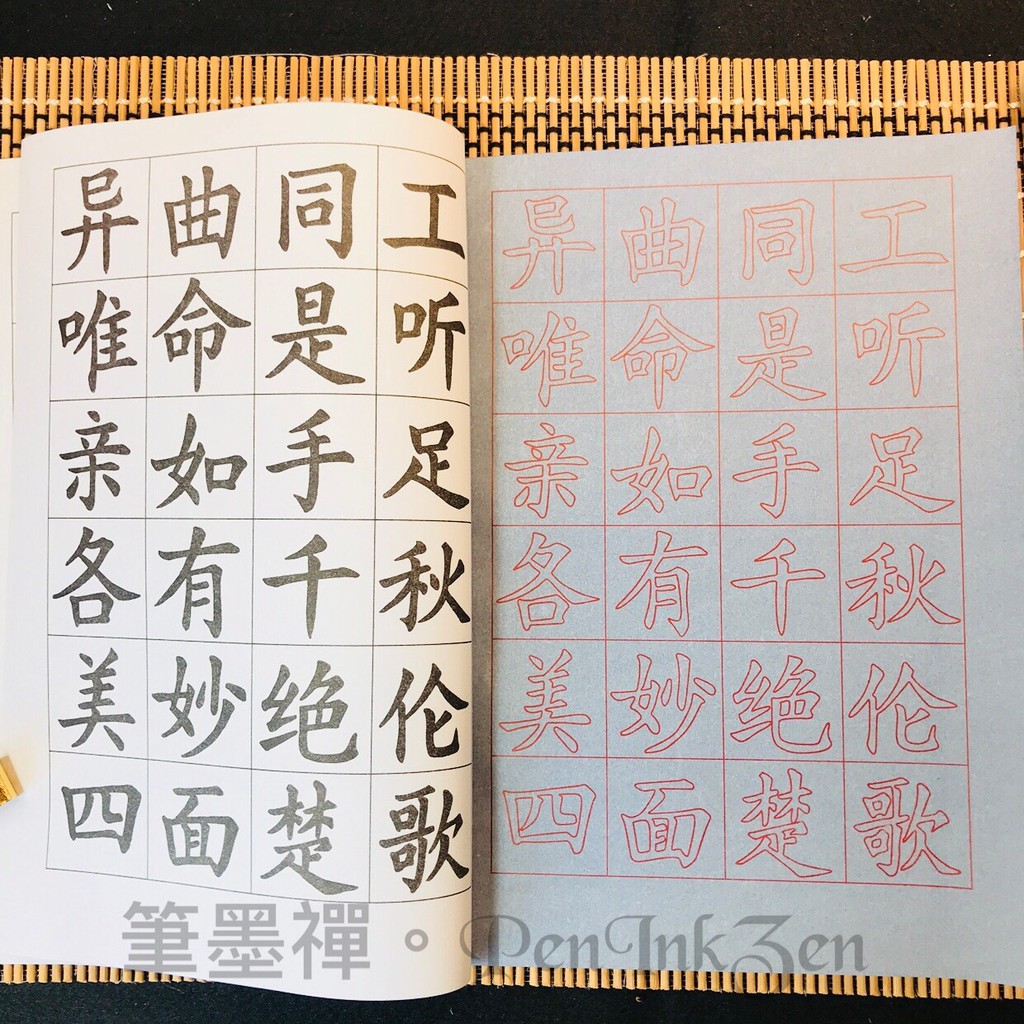 异曲同工
唯命是听
亲如手足
各有千秋
美妙绝伦
四面楚歌
异曲同工
唯命是听
亲如手足
各有千秋
美妙绝伦
四面楚歌
筆墨禪。PenInkZen